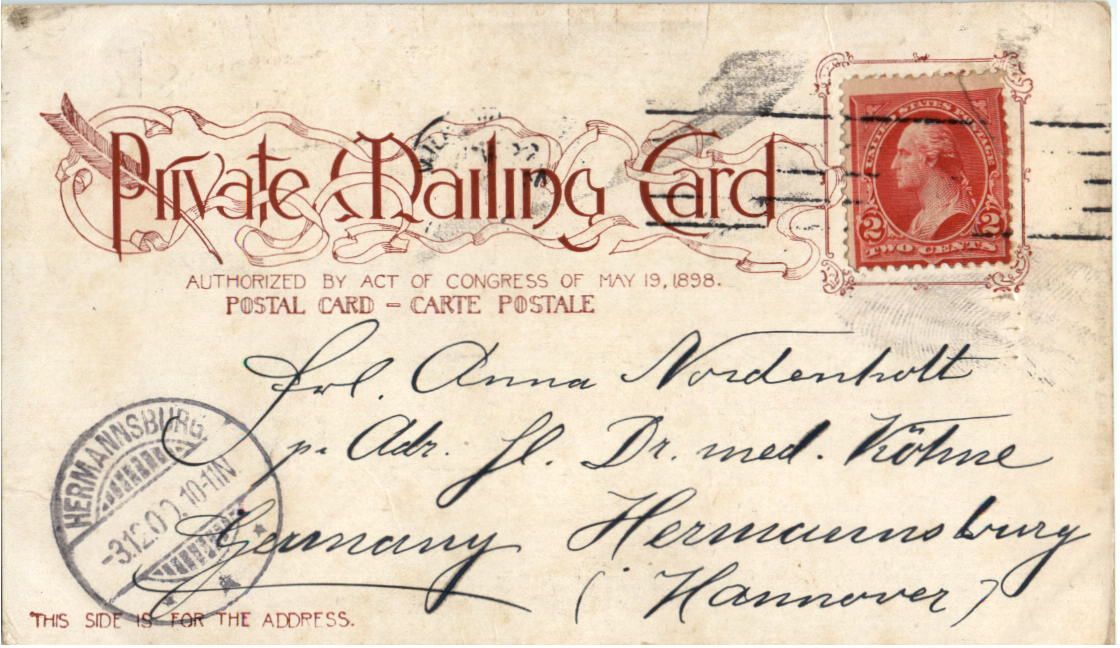 Private Mailing Card
UNITED STATES POSTAGE
2 2
TWO CENTS
AUTHORIZED BY ACT OF CONGRESS OF MAY 19, 1898.
POSTAL CARD – CARTE POSTALE
Frl. Anna Nordenholt
p. Adr. Hl. Dr. med. Köhne
Germany Hermannsburg
(Hannover)
HERMANNSBURG
-3.12.00.10-11N
THIS SIDE IS FOR THE ADDRESS.